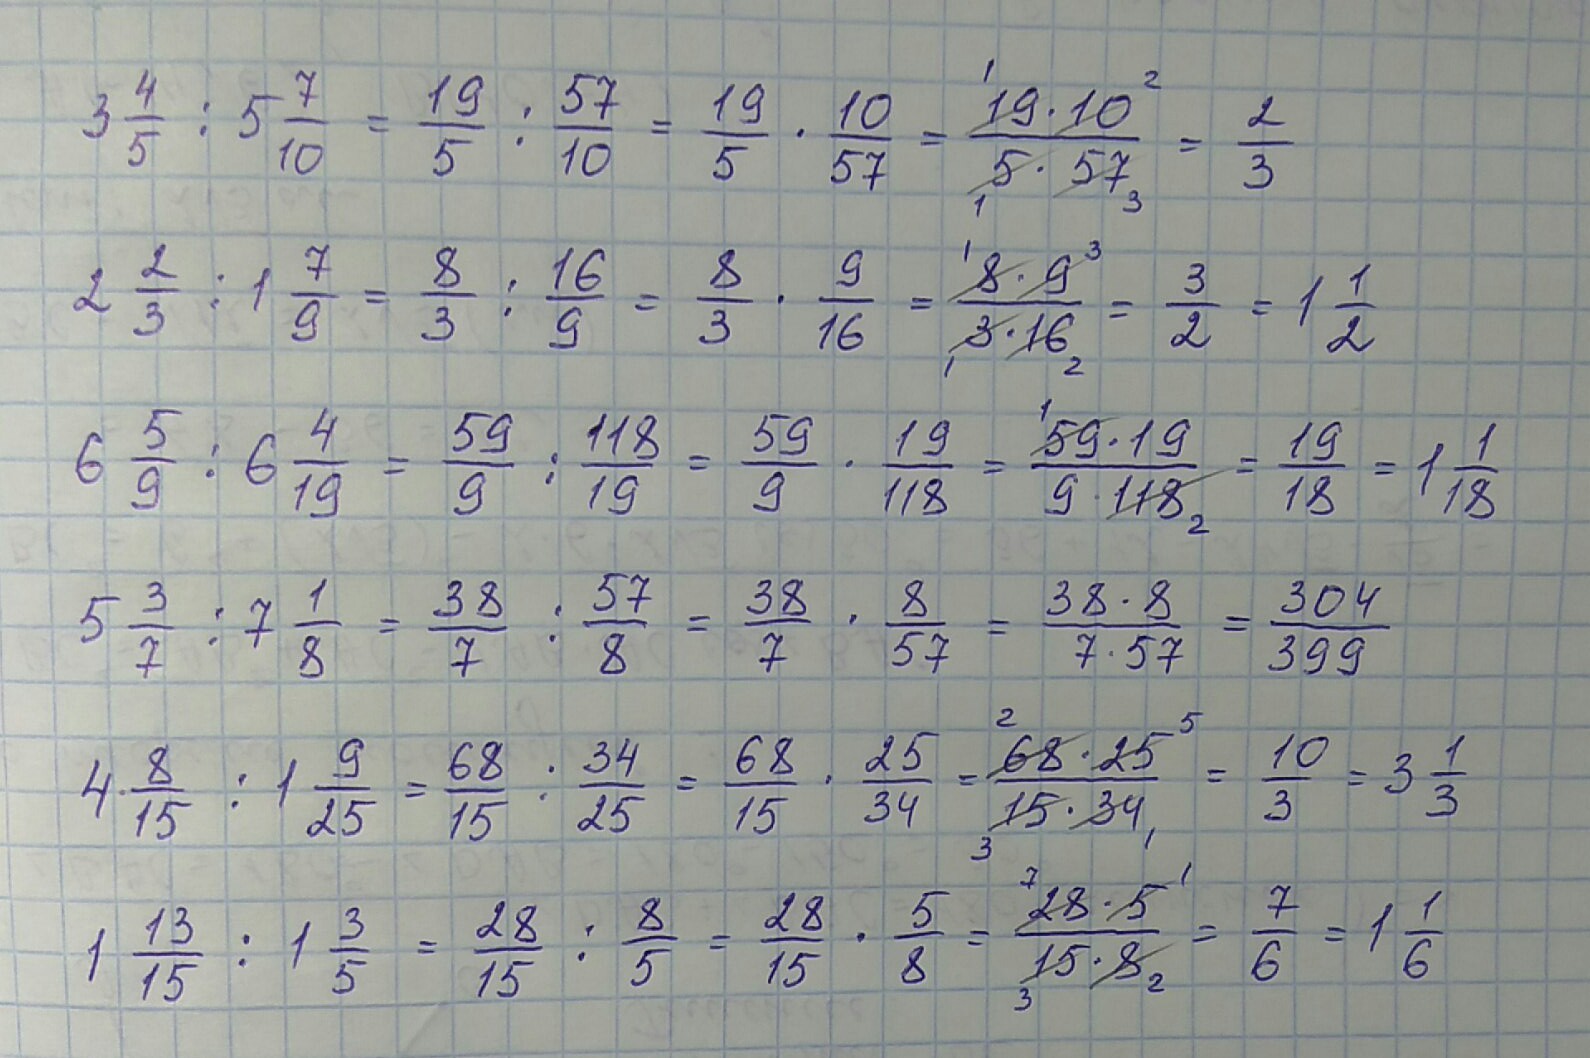 3 4/5 : 5 7/10 = 19/5 : 57/10 = 19/5 · 10/57 = 19·10/5·57 = 2/3
2 2/3 : 1 7/9 = 8/3 : 16/9 = 8/3 · 9/16 = 8·9/3·16 = 3/2 = 1 1/2
6 5/9 : 6 4/19 = 59/9 : 118/19 = 59/9 · 19/118 = 59·19/9·118 = 19/18 = 1 1/18
5 3/7 : 7 1/8 = 38/7 : 57/8 = 38/7 · 8/57 = 38·8/7·57 = 304/399
4 8/15 : 1 9/25 = 68/15 : 34/25 = 68/15 · 25/34 = 68·25/15·34 = 10/3 = 3 1/3
1 13/15 : 1 3/5 = 28/15 : 8/5 = 28/15 · 5/8 = 28·5/15·8 = 7/6 = 1 1/6